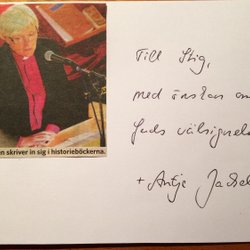 en skriver in sig i historieböckerna.
Till Stig,
med önskan om
Guds välsignel
+ Antje Jackel